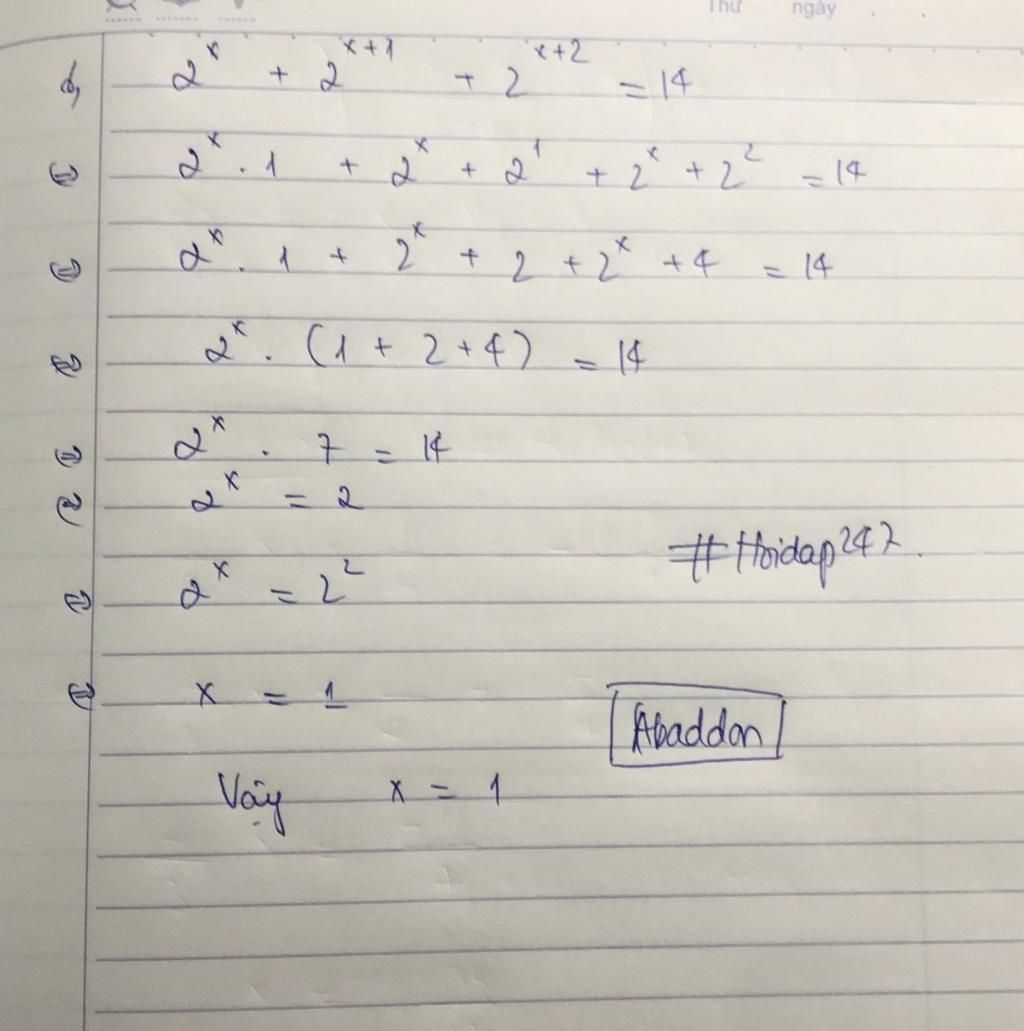 Thứ ngày . .
b, 2^x + 2^{x+1} + 2^{x+2} = 14
⇔ 2^x . 1 + 2^x + 2^1 + 2^x + 2^2 = 14
⇔ 2^x . 1 + 2^x + 2 + 2^x + 4 = 14
⇔ 2^x . (1 + 2 + 4) = 14
⇔ 2^x . 7 = 14
⇔ 2^x = 2
#Hoidap247.
⇔ 2^x = 2^2
⇔ x = 1
Abaddon
Vậy x = 1